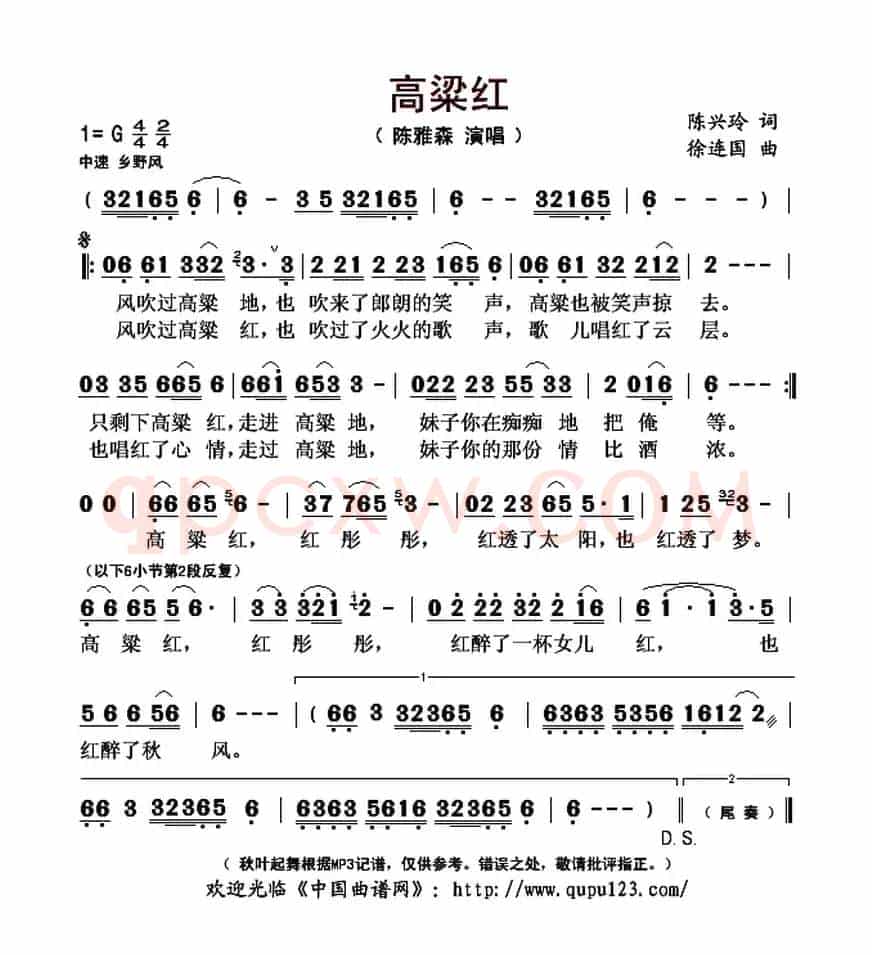 高粱红
1= G 4/4 2/4
（ 陈雅森 演唱 ）
陈兴玲 词
徐连国 曲
中速 乡野风
( 32165 6 | 6 - 3 5 32165 | 6 - - 32165 | 6 - - - ) |
‖: 06 61 332 2 3· 3 | 2 21 2 23 165 6 | 06 61 32 212 | 2 - - - |
风吹过高粱 地，也 吹来了郎朗的笑 声，高粱也被笑声掠 去。
风吹过高粱 红，也 吹过了火火的歌 声，歌 儿唱红了云 层。
03 35 665 6 | 661 653 3 - | 022 23 55 33 | 2 016 | 6 - - - :‖
只剩下高粱 红，走进 高粱地， 妹子你在痴痴 地 把 俺 等。
也唱红了心 情，走过 高粱地， 妹子你的那份 情 比 酒 浓。
0 0 | 66 65 5 6 - | 37 765 5 3 - | 02 23 65 5· 1 | 1 25 32 3 - |
高 粱 红， 红 彤 彤， 红透了太 阳，也 红透了 梦。
（以下6小节第2段反复）
6 6 65 5 6· | 3 3 321 1 2 - | 0 2 22 32 2 16 | 6 1 · 1 3· 5 |
高 粱 红， 红 彤 彤， 红醉了一杯女儿 红， 也
1
5 6 6 56 | 6 - - - | ( 66 3 32365 6 | 6363 5356 1612 2 |
红醉了秋 风。
2
66 3 32365 6 | 6363 5616 32365 6 | 6 - - - ) ‖ （ 尾 奏 ） ‖
D. S.
（ 秋叶起舞根据MP3记谱，仅供参考。错误之处，敬请批评指正。）
欢迎光临《中国曲谱网》：http://www.qupu123.com/
qpcxw.COM